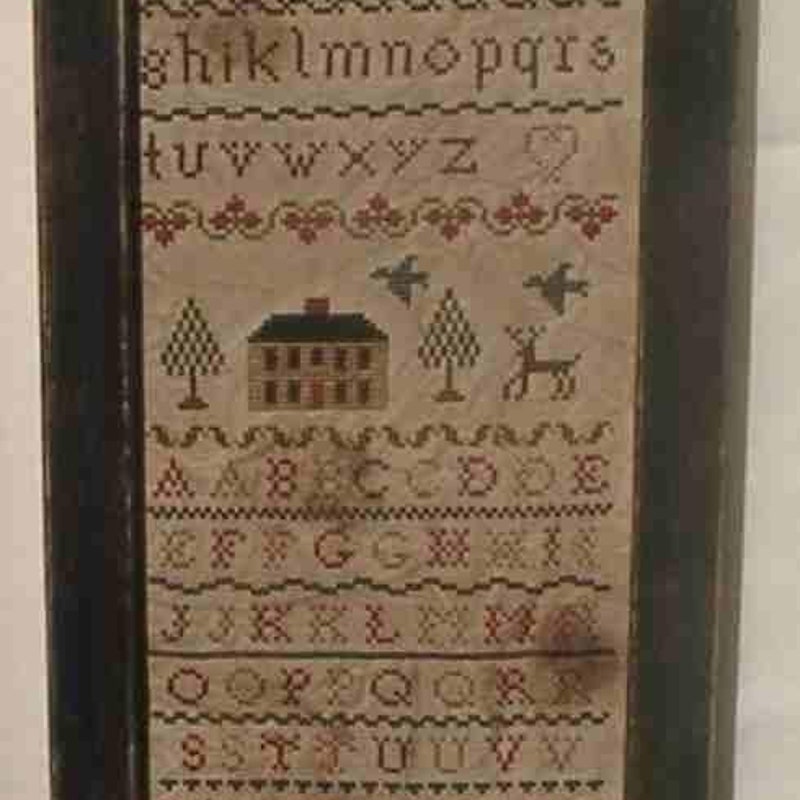 ghiklmnopqrs
tuvwxyz
AABBCCDDE
EFFGGHHII
JJKKLMMN
OOPPQQRR
SSTTUUVV